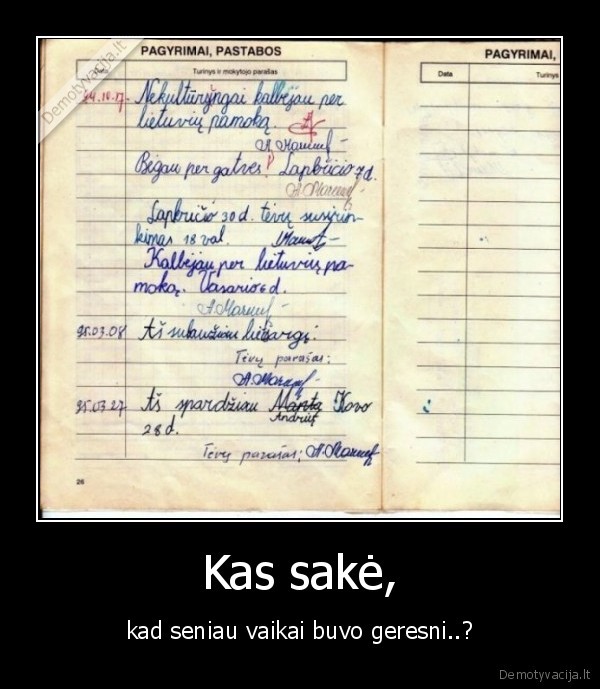 Demotyvacija.lt
PAGYRIMAI, PASTABOS
PAGYRIMAI,
Data
Turinys ir mokytojo parašas
Data
Turinys
94.10.17.
Nekultūringai kalbėjau per
lietuvių pamoką.
Bėgau per gatvės! Lapkričio 7 d.
Lapkričio 30 d. tėvų susirin-
kimas 18 val.
Kalbėjau per lietuvių pa-
moką. Vasario 6 d.
95.03.08 Aš sulaužiau
Tėvų parašas:
95.03.27 Aš spardžiau Kovo
Andrius
28 d.
Tėvų parašas:
26
Kas sakė,
kad seniau vaikai buvo geresni..?
Demotyvacija.lt